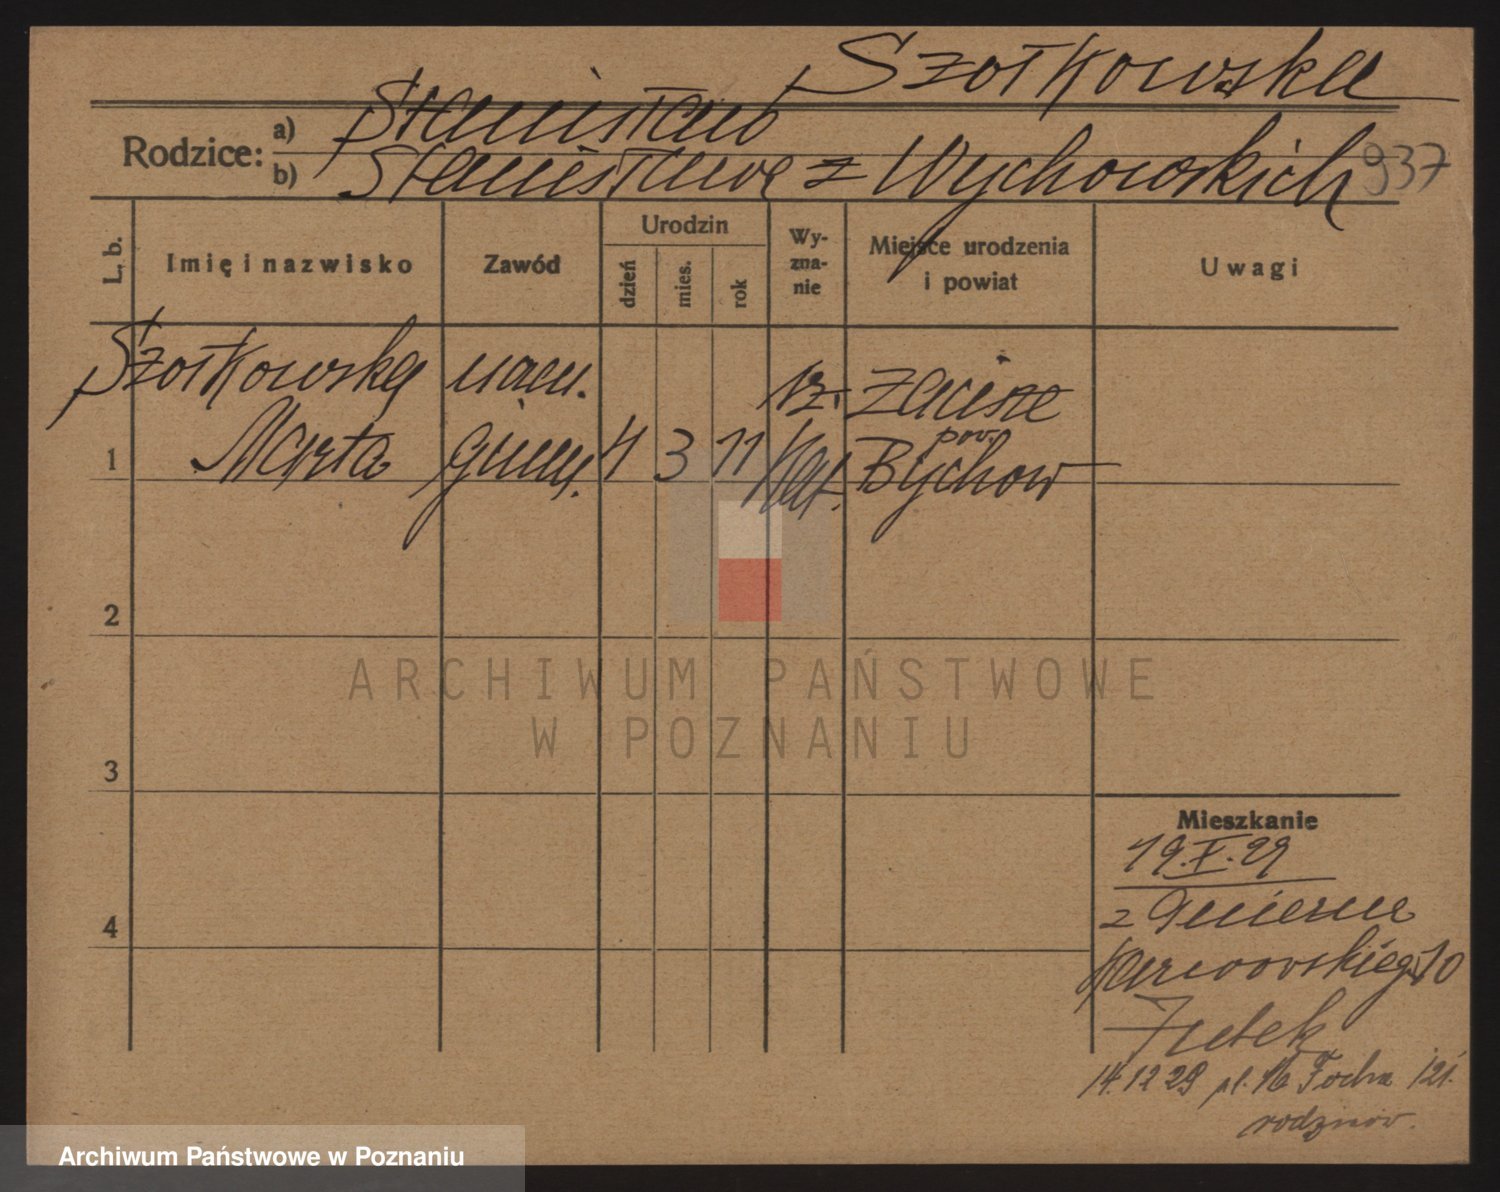 Szołkowska
Rodzice: a) Stanisław
b) Stanisława z Wychowskich 937
L. b. Imię i nazwisko Zawód Urodzin dzień mies. rok Wyznanie Miejsce urodzenia i powiat Uwagi
Szołkowska nau. rz. Zacisze
1 Marta gimn. 4 3 11 kat. pow. Bychow
2
3
4
Mieszkanie
19.X.29
z Gniezna
10
14.12 29 pl. Focha 121.
rodziców.
ARCHIWUM PAŃSTWOWE
W POZNANIU
Archiwum Państwowe w Poznaniu